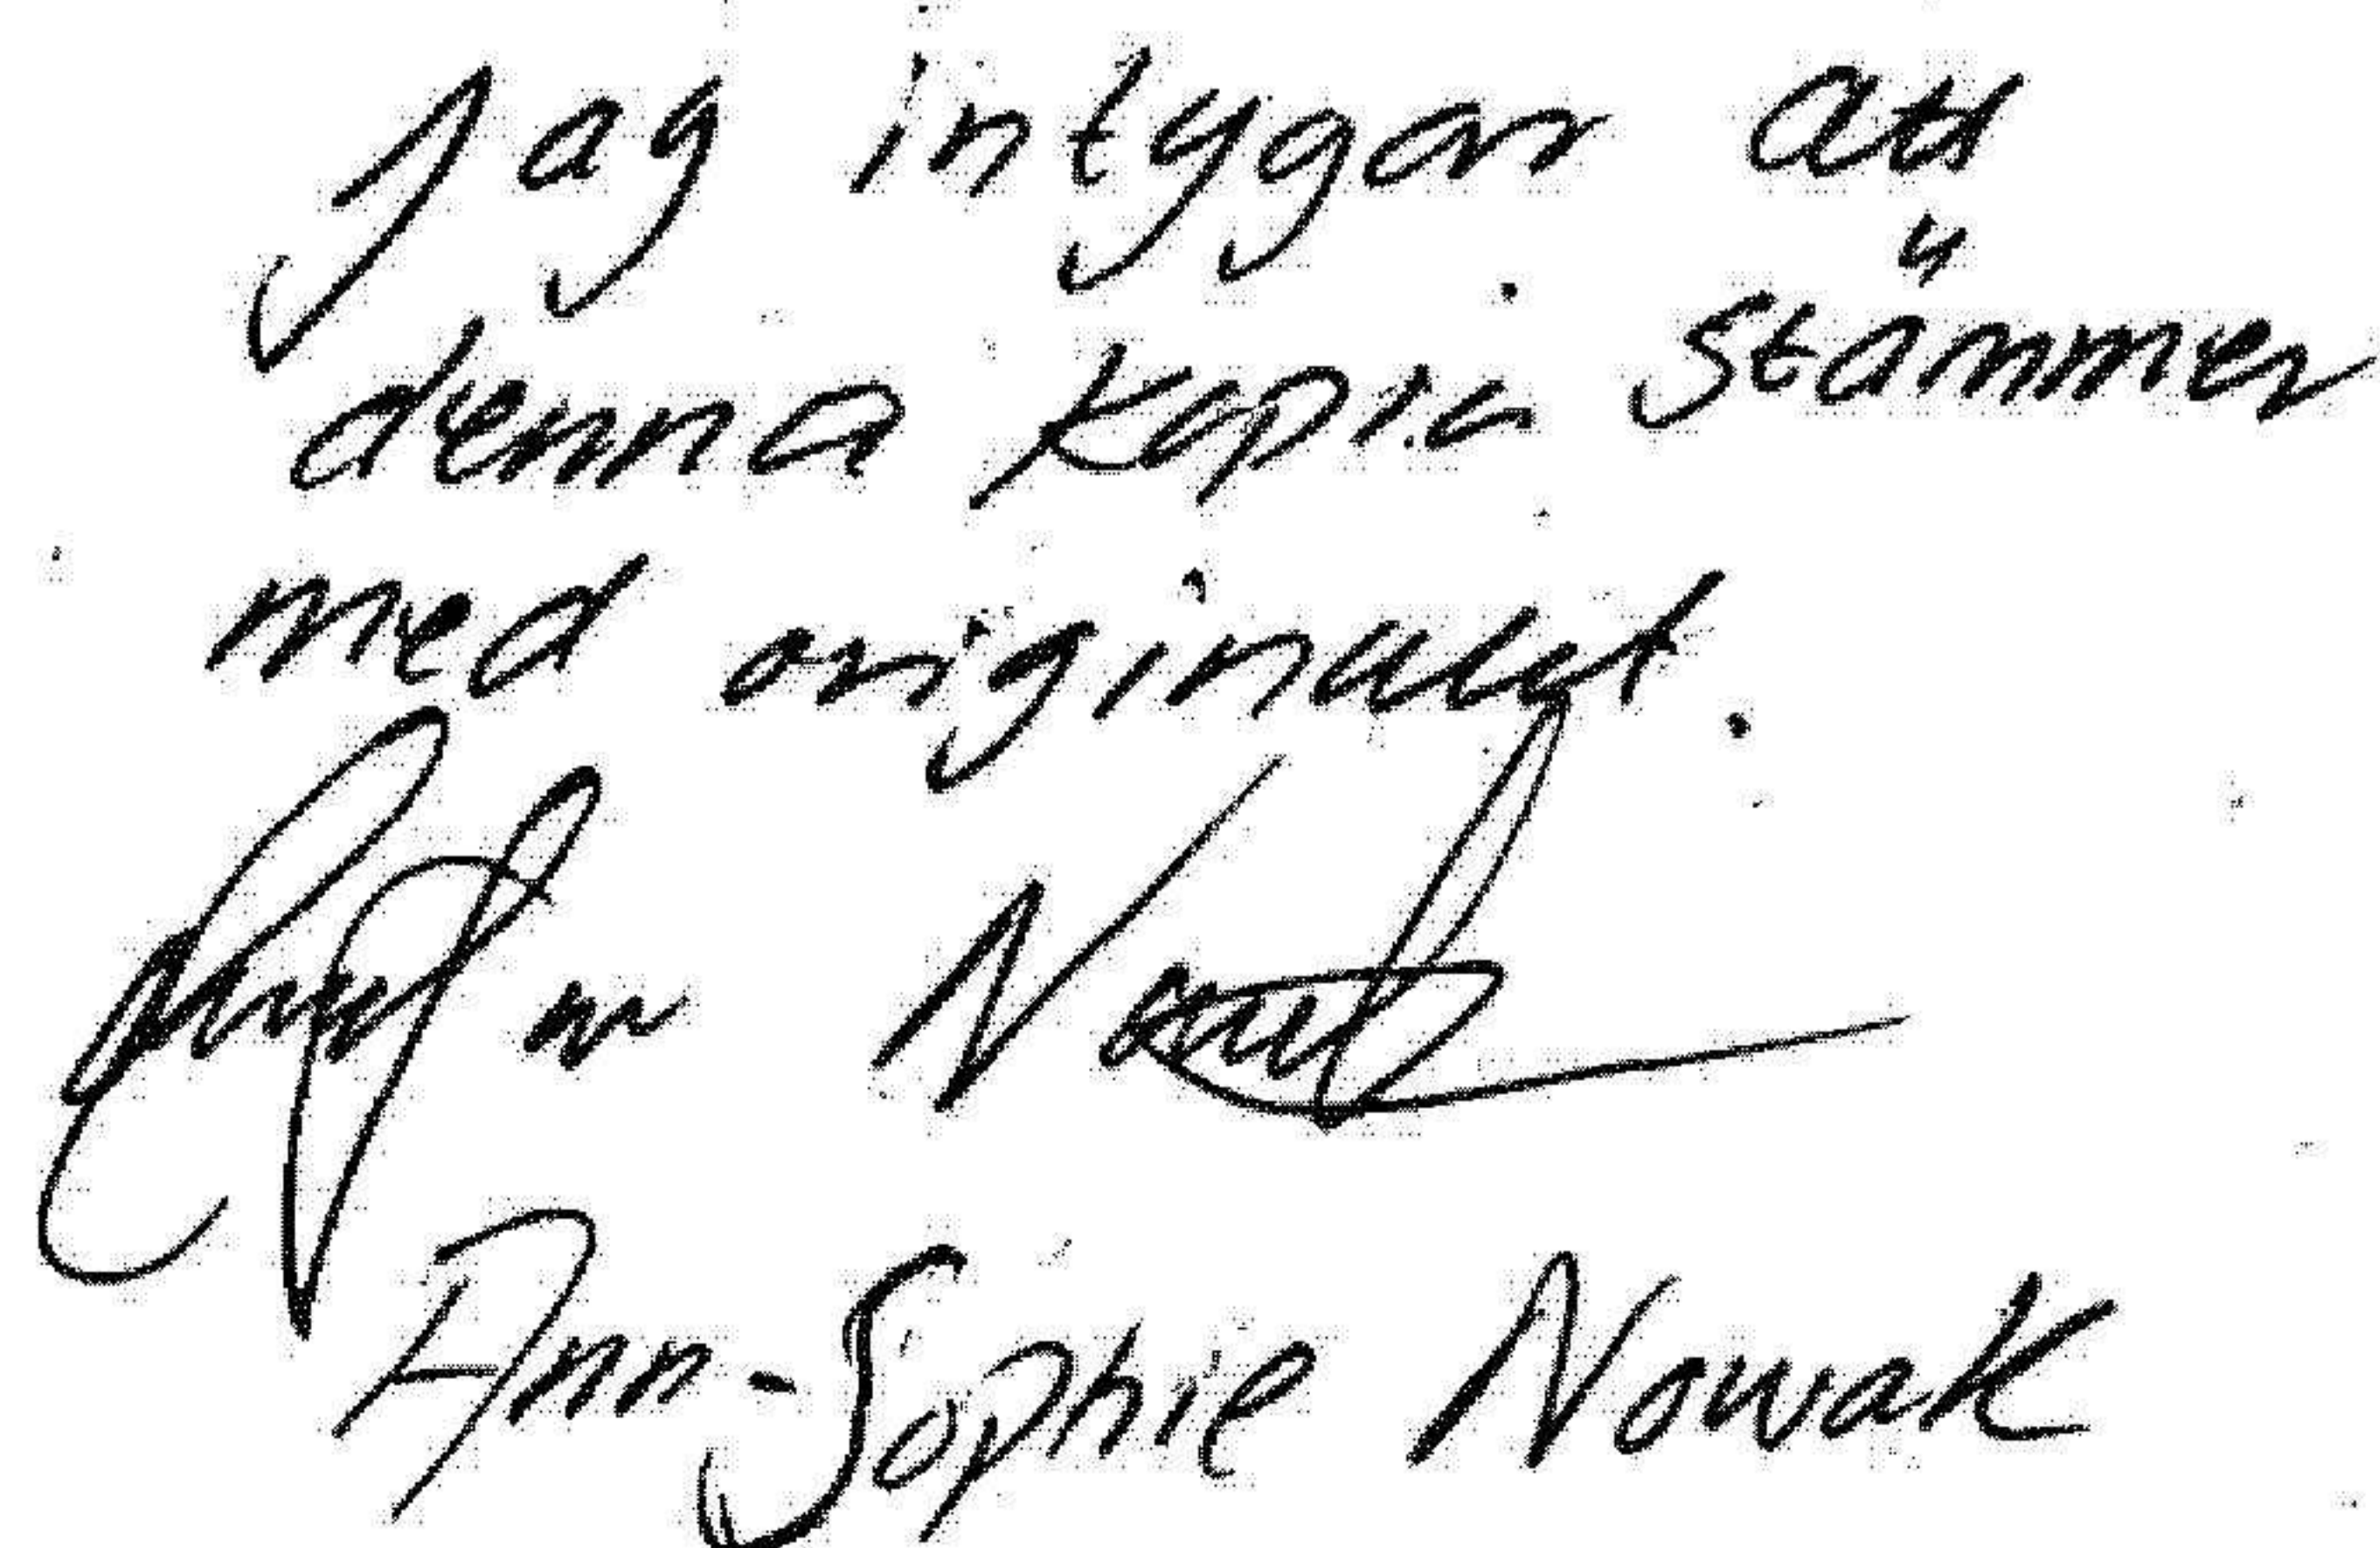 Jag intygar att
denna kopia stämmer
med originalet.
Nowak
Ann-Sophie Nowak